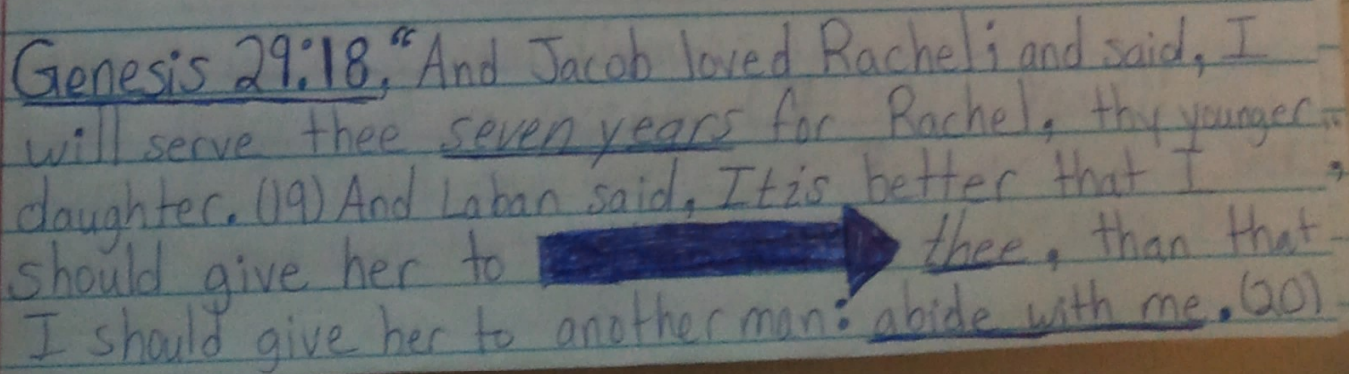 Genesis 29:18, "And Jacob loved Rachel; and said, I
will serve thee seven years for Rachel, thy younger
daughter. (19) And Laban said, It is better that I
should give her to thee, than that
I should give her to another man: abide with me. (20)